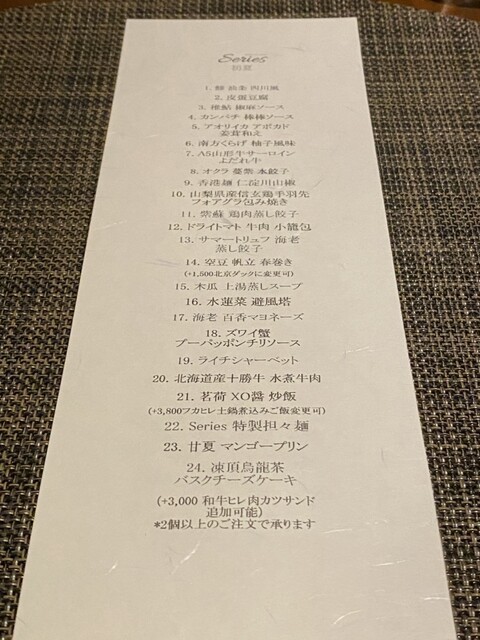 Series
1. 鯵 油条 四川風
2. 皮蛋豆腐
3. 稚鮎 椒麻ソース
4. カンパチ 棒棒ソース
5. アオリイカ アボカド
姜茸和え
6. 南方くらげ 柚子風味
7. A5山形牛サーロイン
よだれ牛
8. オクラ 蔓紫 水餃子
9. 香港麺 仁淀川山椒
10. 山梨県産信玄鶏手羽先
フォアグラ包み焼き
11. 紫蘇 鶏肉蒸し餃子
12. ドライトマト 牛肉 小籠包
13. サマートリュフ 海老
蒸し餃子
14. 空豆 帆立 春巻き
(+1,500北京ダックに変更可)
15. 木瓜 上湯蒸しスープ
16. 水蓮菜 避風塔
17. 海老 百香マヨネーズ
18. ズワイ蟹
プーパッポンチリソース
19. ライチシャーベット
20. 北海道産十勝牛 水煮牛肉
21. 茗荷 XO醬 炒飯
(+3,800フカヒレ土鍋煮込みご飯変更可)
22. Series 特製担々麺
23. 甘夏 マンゴープリン
24. 凍頂烏龍茶
バスクチーズケーキ
(+3,000 和牛ヒレ肉カツサンド
追加可能)
*2個以上のご注文で承ります